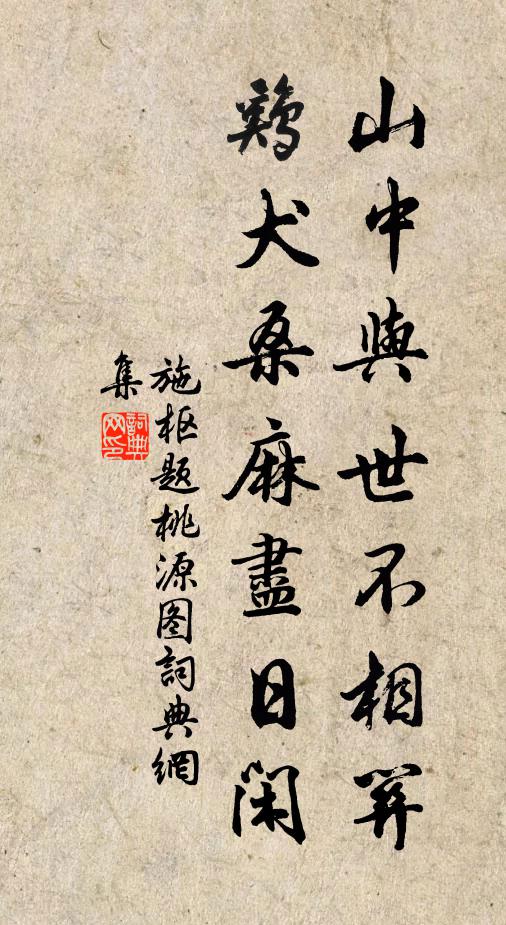 山中與世不相關
鷄犬桑麻盡日閑
施枢题桃源图詞典網
集
詞典网印